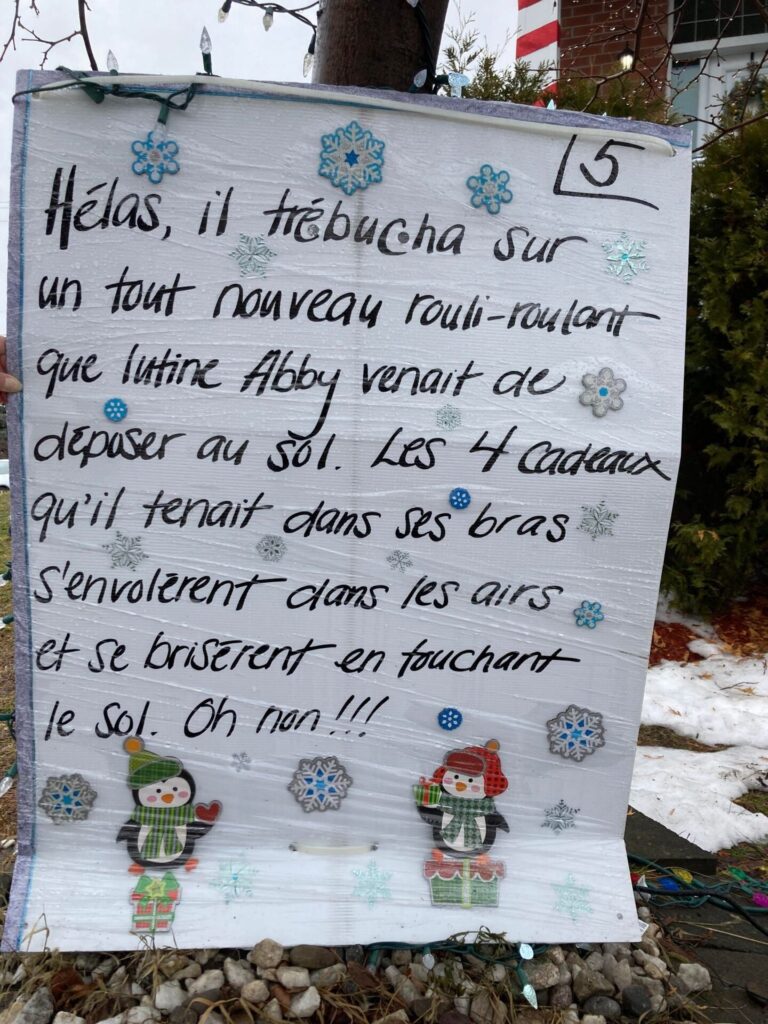 5
Hélas, il trébucha sur
un tout nouveau rouli-roulant
que lutine Abby venait de
déposer au sol. Les 4 cadeaux
qu'il tenait dans ses bras
s'envolèrent dans les airs
et se brisèrent en touchant
le sol. Oh non!!!